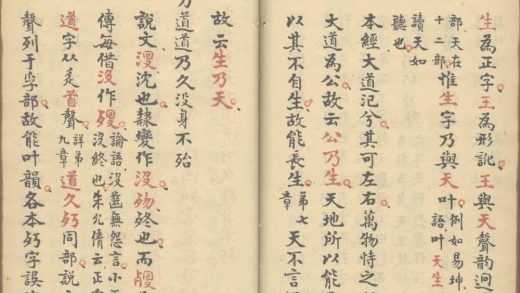 生為正字王為形訛王與天聲韻迥
部天在
十二部
惟生字乃與天叶
例如易坤
語叶天生
讀天如
聽也
本經大道氾兮其可左右萬物恃之
大道為公故云公乃生天地所以能
以其不自生故能長生
第七
章
天不言
故云生乃天
乃道道乃久沒身不殆
說文沈也隸變作沒歾終也而
傳每借沒作歿
論語沒齒無怨言小
沒終也朱允倩云正
道字从辵首聲
詳第
九章
道久歾同部說
聲列于孚部故能叶韻各本歾字誤